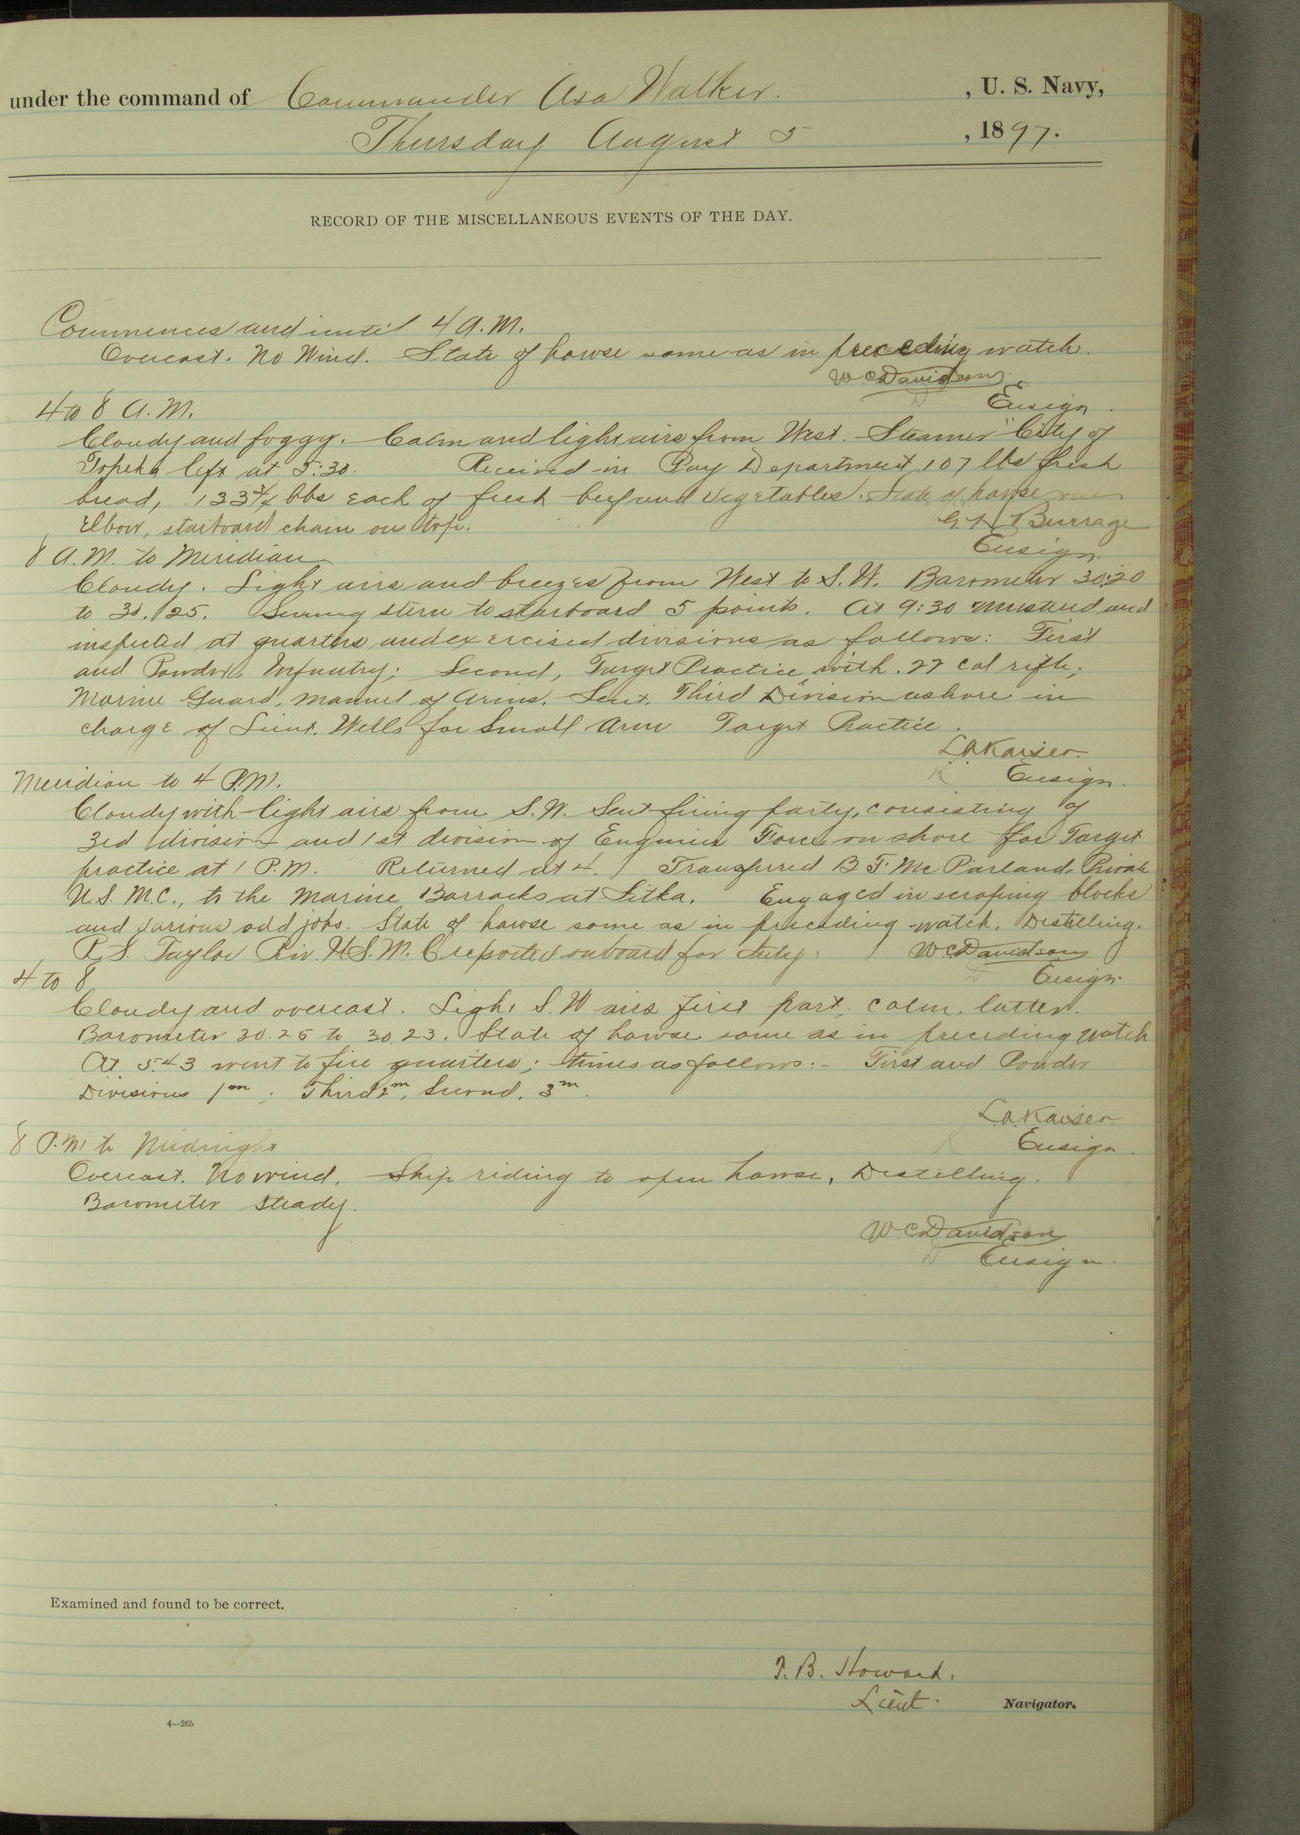 under the command of Commander Asa Walker. , U. S. Navy,
Thursday August 5 , 1897.
RECORD OF THE MISCELLANEOUS EVENTS OF THE DAY.
Commences and until 4 A.M.
Overcast. No Wind. State of hawse same as in preceding watch.
W C Davidson
Ensign.
4 to 8 A.M.
Cloudy and foggy. Calm and light airs from West. Steamer "City of
Topeka left at 5:30. Received in Pay Department 107 lbs fresh
bread, 133 3/4 lbs each of fresh beef and vegetables. State of hawse
Elbow, starboard chain on top. G. H. Burrage
Ensign.
8 A.M. to Meridian
Cloudy. Light airs and breezes from West to S.W. Barometer 30.20
to 30.25. Swung stern to starboard 5 points. At 9:30 mustered and
inspected at quarters and exercised divisions as follows: First
and Powder, Infantry; Second, Target Practice with .22 cal rifle;
Marine Guard, manuel of Arms. Sent Third Division ashore in
charge of Lieut. Wells for Small Arm Target Practice.
L A Kaiser.
Ensign.
Meridian to 4 P.M.
Cloudy with light airs from S.W. Sent firing party, consisting of
3rd division and 1st division of Engineer Force on shore for Target
practice at 1 P.M. Returned at 4. Transferred B F Mc Parland, Private
U.S. M.C., to the Marine Barracks at Sitka. Engaged in scraping blocks
and various odd jobs. State of hawse same as in preceding watch. Distilling.
R. S. Taylor Priv. U.S.M.C reported onboard for duty. W C Davidson
Ensign.
4 to 8
Cloudy and overcast. Light S.W airs first part, calm, latter.
Barometer 30.25 to 30.23. State of hawse same as in preceding watch
At 5:43 went to fire quarters; times as follows:- First and Powder
Divisions 1m; Third 2m, Second, 3m.
L.A. Kaiser
Ensign.
8 P.M. to Midnight
Overcast. No wind. Ship riding to open hawse. Distilling.
Barometer Steady.
W. C Davidson
Ensign.
Examined and found to be correct.
T. B. Howard.
Lieut. Navigator.
4—265